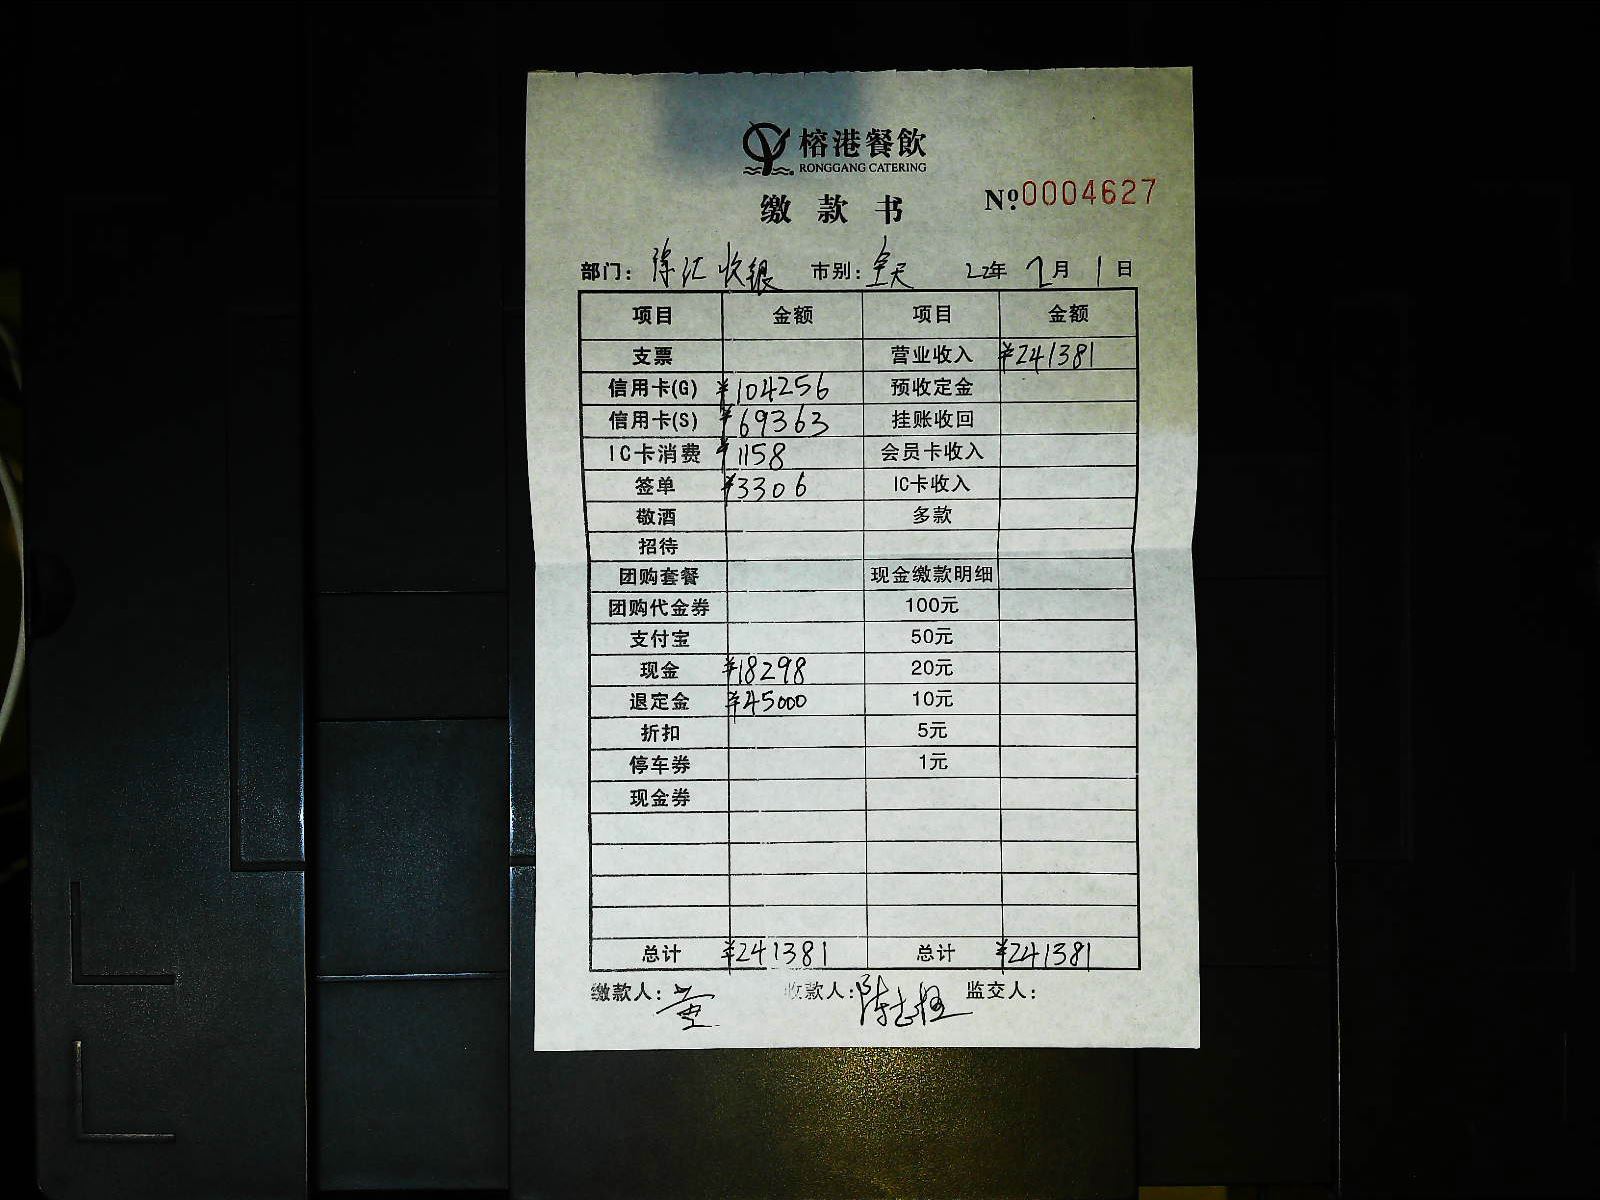 榕港餐飲
RONGGANG CATERING
缴款书 №0004627
部门: 收银 市别: 全天 22年 2月 1日
项目 金额 项目 金额
支票 营业收入 ¥241381
信用卡(G) ¥104256 预收定金
信用卡(S) ¥69363 挂账收回
IC卡消费 ¥1158 会员卡收入
签单 ¥3306 IC卡收入
敬酒 多款
招待
团购套餐 现金缴款明细
团购代金券 100元
支付宝 50元
现金 ¥18298 20元
退定金 ¥45000 10元
折扣 5元
停车券 1元
现金券
总计 ¥241381 总计 ¥241381
缴款人: 收款人: 监交人: